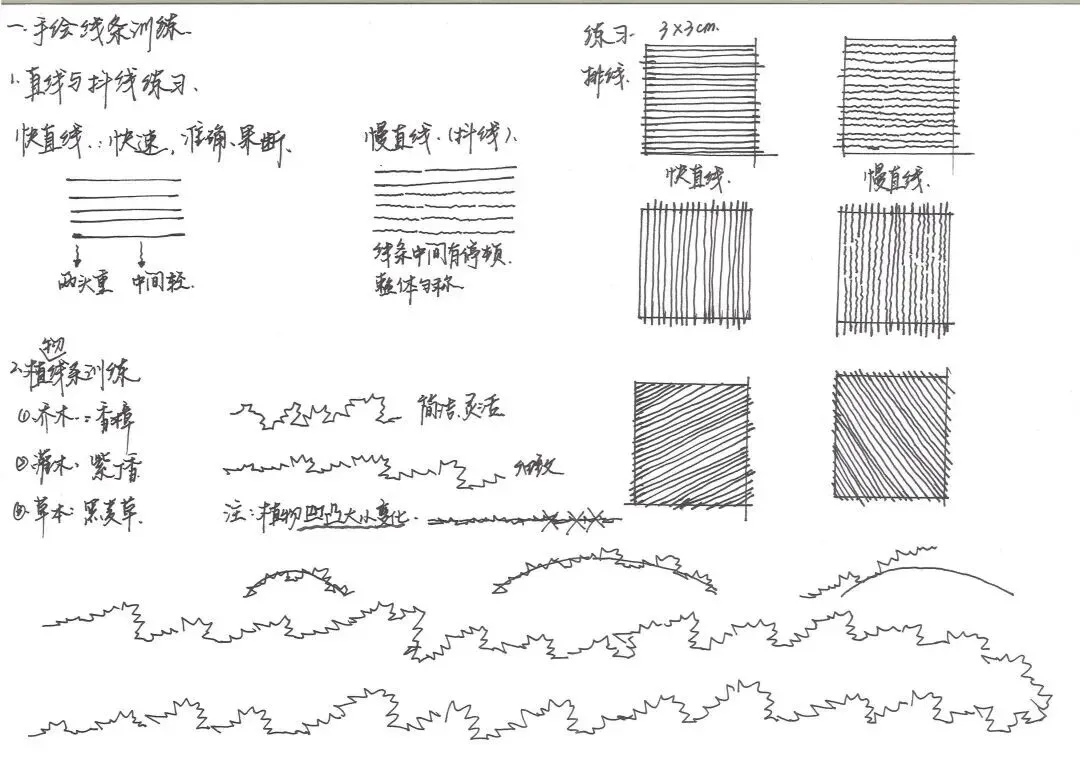 一.手绘线条训练.
1.直线与抖线练习.
快直线:快速,准确、果断.
两头重 中间轻.
慢直线.(抖线).
线条中间有停顿.
整体匀称
练习. 3×3cm.
排线.
快直线.
慢直线.
2.植物线条训练
①乔木:香樟
简洁.灵活
②灌木:紫丁香.
细致
③草本:黑麦草.
注:植物凹凸大小变化.